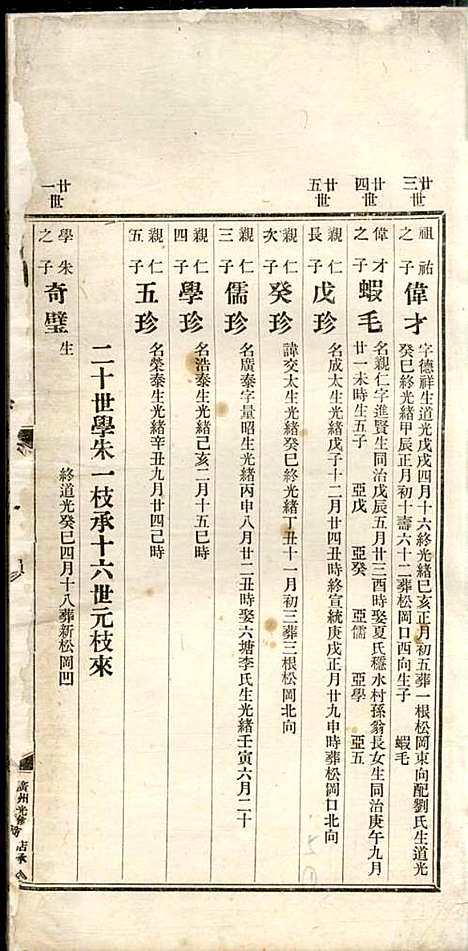 廿三世
祖祐之子
偉才
字德祥生道光戊戌四月十六終光緒己亥正月初五葬一根松岡東向配劉氏生道光
癸巳終光緒甲辰正月初十壽六十二葬松岡口西向生子 蝦毛
廿四世
偉才之子
蝦毛
名觀仁字進賢生同治戊辰五月廿三酉時娶夏氏穩水村孫翁長女生同治庚午九月
廿一未時生五子 亞戊 亞癸 亞儒 亞學 亞五
廿五世
觀仁長子
戊珍
名成太生光緒戊子十二月廿四丑時終宣統庚戌正月廿九申時葬松岡口北向
觀仁次子
癸珍
諱交太生光緒癸巳終光緒丁丑十一月初三葬三根松岡北向
觀仁三子
儒珍
名廣泰字量昭生光緒丙申八月廿二丑時娶六塘李氏生光緒壬寅六月二十
觀仁四子
學珍
名浩泰生光緒己亥二月十五巳時
觀仁五子
五珍
名榮泰生光緒辛丑九月廿四己時
二十世學朱一枝承十六世元枝來
廿一世
學朱之子
奇璧
生 終道光癸巳四月十八葬新松岡凹
廣州光 店承